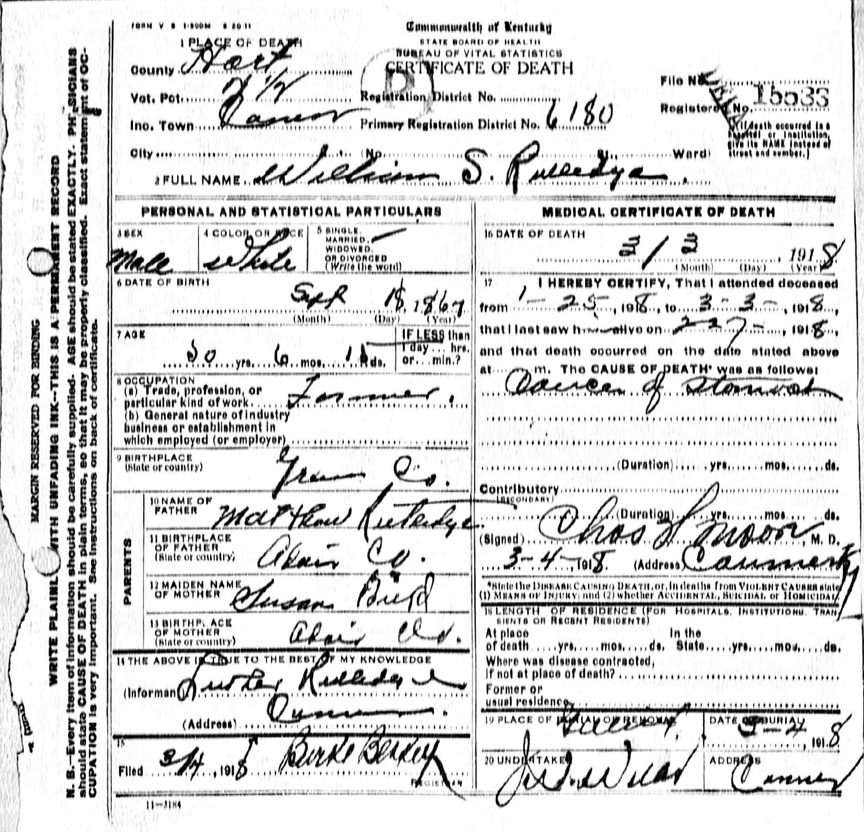 FORM V S 1-500M 8 20-11
Commonwealth of Kentucky
STATE BOARD OF HEALTH
BUREAU OF VITAL STATISTICS
CERTIFICATE OF DEATH
1 PLACE OF DEATH
County Hart
Vot. Pct.
Inc. Town
City
Registration District No.
Primary Registration District No. 6180
(No. St., Ward)
File No.
Registered No. 15533
(If death occurred in a hospital or institution, give its NAME instead of street and number.)
2 FULL NAME William S. Rutledge
PERSONAL AND STATISTICAL PARTICULARS
3 SEX
Male
4 COLOR OR RACE
White
5 SINGLE,
MARRIED,
WIDOWED,
OR DIVORCED
(Write the word)
6 DATE OF BIRTH
Sept 18, 1867
(Month) (Day) (Year)
7 AGE
50 yrs. 6 mos. ds.
IF LESS than
1 day ... hrs.
or ... min.?
8 OCCUPATION
(a) Trade, profession, or
particular kind of work Farmer.
(b) General nature of industry
business or establishment in
which employed (or employer)
9 BIRTHPLACE
(State or country) Green Co.
PARENTS
10 NAME OF
FATHER Matthew Rutledge
11 BIRTHPLACE
OF FATHER
(State or country) Adair Co.
12 MAIDEN NAME
OF MOTHER Susan Bird
13 BIRTHPLACE
OF MOTHER
(State or country) Adair Co.
14 THE ABOVE IS TRUE TO THE BEST OF MY KNOWLEDGE
(Informant) Luther Rutledge
(Address)
15
Filed 3/4, 1918
REGISTRAR
11-3184
MEDICAL CERTIFICATE OF DEATH
16 DATE OF DEATH
3/3, 1918
(Month) (Day) (Year)
17 I HEREBY CERTIFY, That I attended deceased
from 1-25, 1918, to 3-3-, 1918,
that I last saw h alive on 2 27-, 1918,
and that death occurred on the date stated above
at m. The CAUSE OF DEATH* was as follows:
Cancer of stomach
(Duration) yrs. mos. ds.
Contributory
(SECONDARY)
(Duration) yrs. mos. ds.
(Signed) Chas H Moon, M. D.
3-4-, 1918 (Address) Canmer Ky
*State the DISEASE CAUSING DEATH, or, in deaths from VIOLENT CAUSES state
(1) MEANS OF INJURY; and (2) whether ACCIDENTAL, SUICIDAL or HOMICIDAL
18 LENGTH OF RESIDENCE (FOR HOSPITALS, INSTITUTIONS, TRANSIENTS OR RECENT RESIDENTS)
At place In the
of death yrs. mos. ds. State yrs. mos. ds.
Where was disease contracted,
if not at place of death?
Former or
usual residence
19 PLACE OF BURIAL OR REMOVAL
DATE OF BURIAL
3-4, 1918
20 UNDERTAKER
ADDRESS
Canmer
MARGIN RESERVED FOR BINDING
WRITE PLAINLY WITH UNFADING INK--THIS IS A PERMANENT RECORD
N. B.--Every item of information should be carefully supplied. AGE should be stated EXACTLY. PHYSICIANS
should state CAUSE OF DEATH in plain terms, so that it may be properly classified. Exact statement of OC-
CUPATION is very important. See instructions on back of certificate.